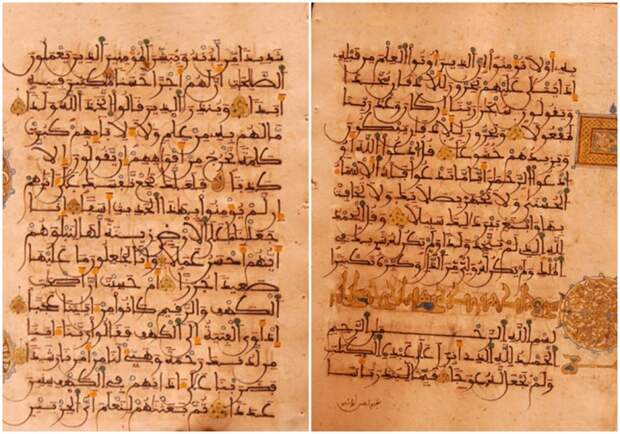 به أو لا تومنوا إن الذين أوتوا العلم من قبله
إذا يتلى عليهم يخرون للاذقان سجدا
ويقولون سبحن ربنا إن كان وعد ربنا
لمفعولا ويخرون للاذقان يبكون
ويزيدهم خشوعا قل ادعوا الله أو
ادعوا الرحمن أيا ما تدعوا فله الاسماء
الحسنى ولا تجهر بصلاتك ولا تخافت
بها وابتغ بين ذلك سبيلا وقل الحمد
لله الذي لم يتخذ ولدا ولم يكن له شريك في
الملك ولم يكن له ولي من الذل وكبره تكبيرا
بسم الله الرحمن الرحيم
الحمد لله الذي أنزل على عبده الكتب
ولم يجعل له عوجا قيما لينذر باسا
شديدا من لدنه ويبشر المومنين الذين يعملون
الصلحت أن لهم أجرا حسنا مكثين فيه
أبدا وينذر الذين قالوا اتخذ الله ولدا
ما لهم به من علم ولا لابائهم كبرت
كلمة تخرج من أفوههم إن يقولون إلا
كذبا فلعلك بخع نفسك على ءاثرهم
إن لم يومنوا بهذا الحديث أسفا إنا
جعلنا ما على الارض زينة لها لنبلوهم
أيهم أحسن عملا وإنا لجعلون ما عليها
صعيدا جرزا أم حسبت أن أصحب
الكهف والرقيم كانوا من ءايتنا عجبا
إذ أوى الفتية إلى الكهف فقالوا ربنا ءاتنا
من لدنك رحمة وهيئ لنا من أمرنا رشدا
فضربنا على ءاذانهم في الكهف سنين
عددا ثم بعثنهم لنعلم أي الحزبين